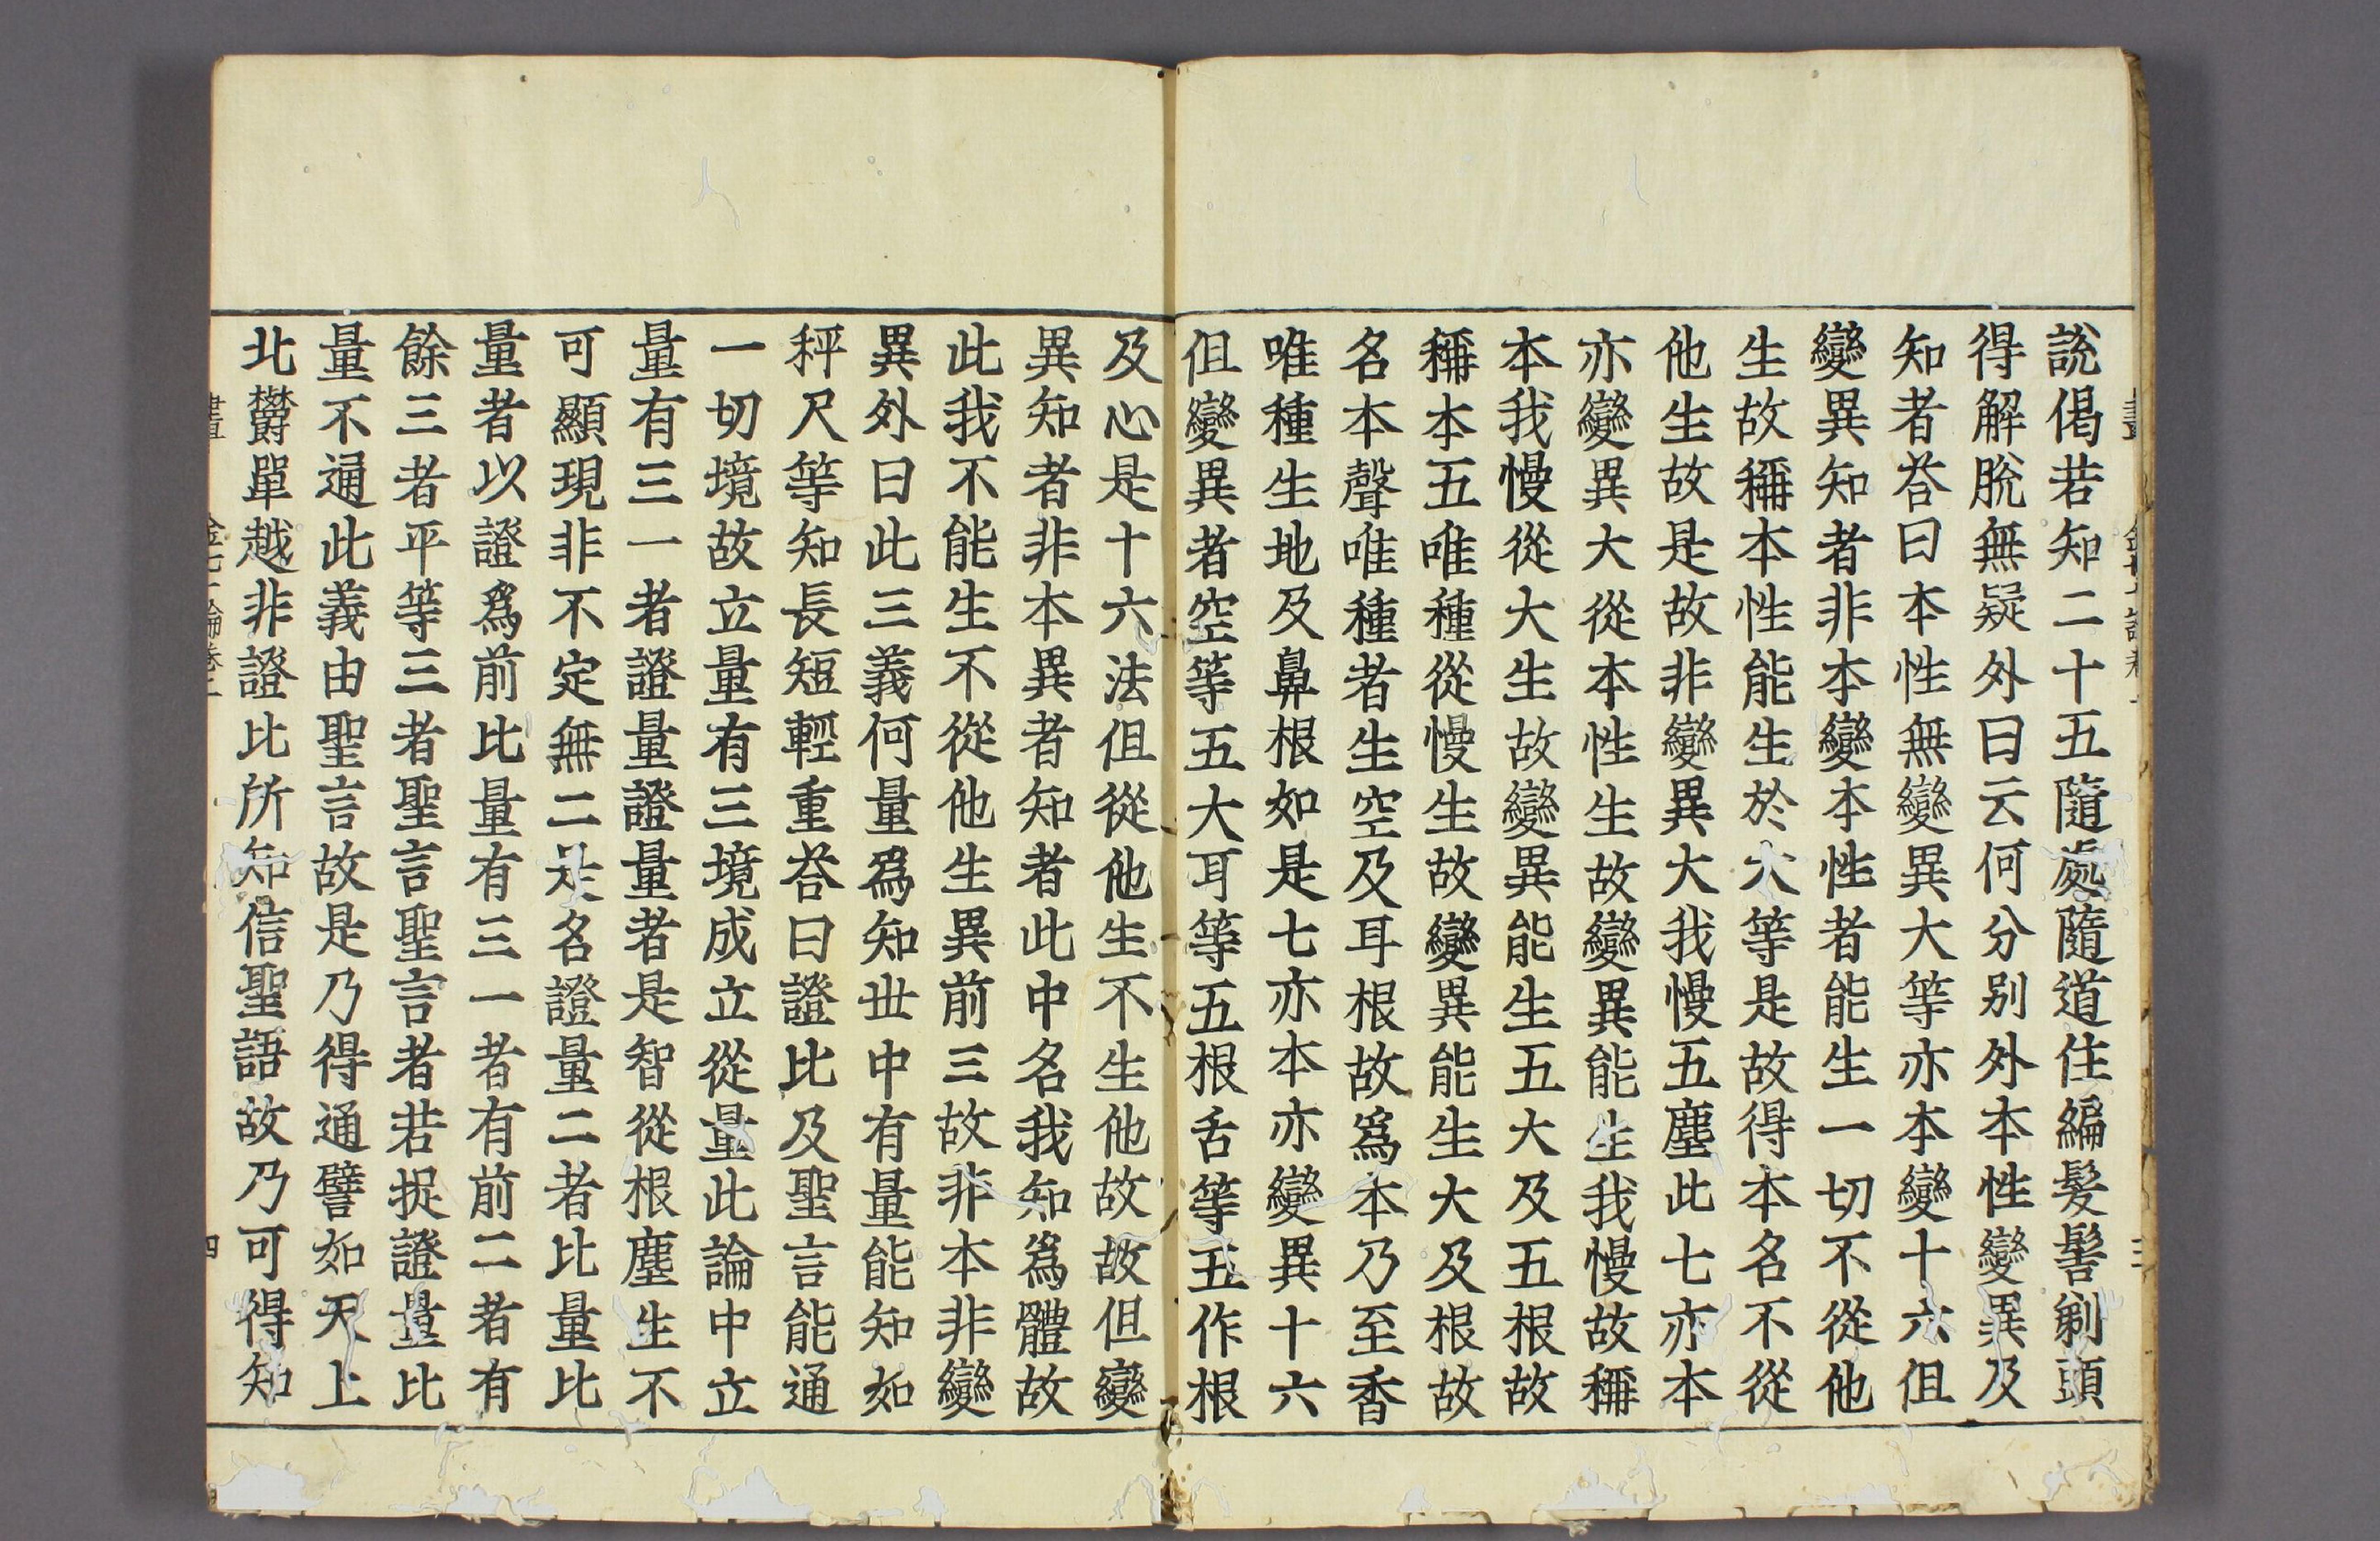 說偈若知二十五隨處隨道住編髮髻剃頭
得解脫無疑外曰云何分別外本性變異及
知者荅曰本性無變異大等亦本變十六但
變異知者非本變本性者能生一切不從他
生故稱本性能生於大等是故得本名不從
他生故是故非變異大我慢五塵此七亦本
亦變異大從本性生故變異能生我慢故稱
本我慢從大生故變異能生五大及五根故
稱本五唯種從慢生故變異能生大及根故
名本聲唯種者生空及耳根故爲本乃至香
唯種生地及鼻根如是七亦本亦變異十六
但變異者空等五大耳等五根舌等五作根
及心是十六法但從他生不生他故故但變
異知者非本異者知者此中名我知爲體故
此我不能生不從他生異前三故非本非變
異外曰此三義何量爲知世中有量能知如
秤尺等知長短輕重荅曰證比及聖言能通
一切境故立量有三境成立從量此論中立
量有三一者證量證量者是智從根塵生不
可顯現非不定無二是名證量二者比量比
量者以證爲前比量有三一者有前二者有
餘三者平等三者聖言聖言者若捉證量比
量不通此義由聖言故是乃得通譬如天上
北欝單越非證比所知信聖語故乃可得知
四